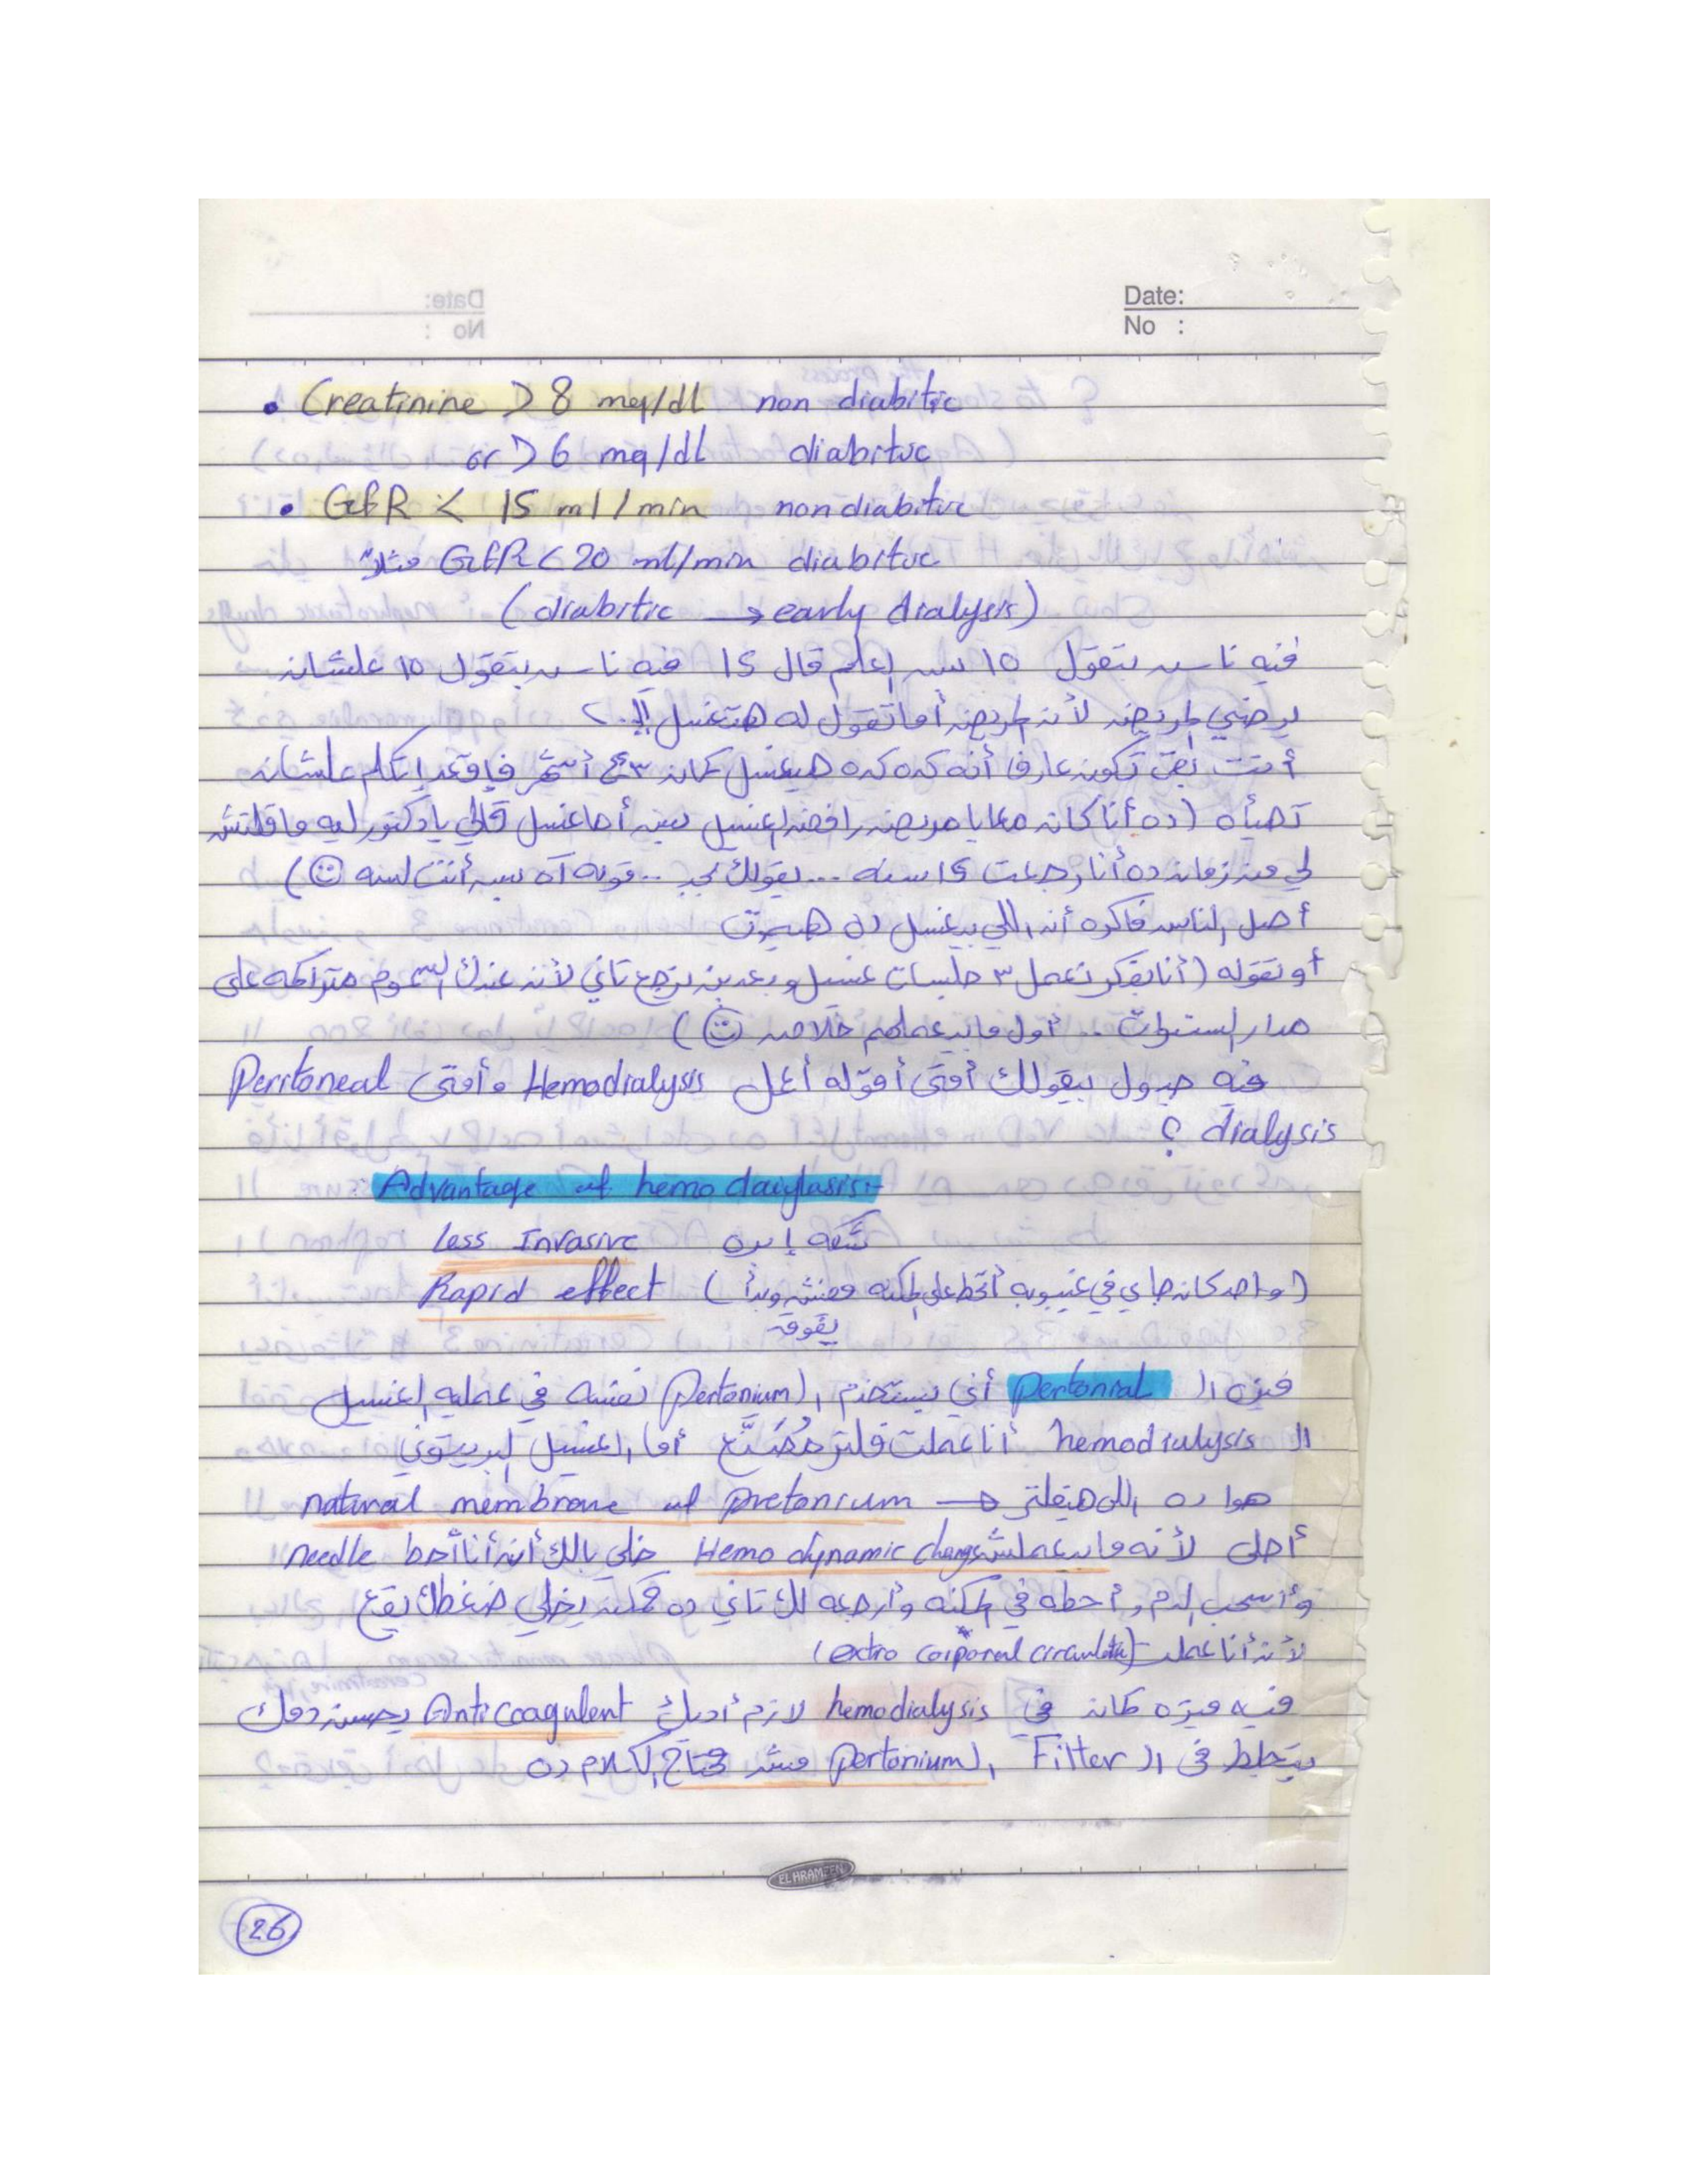 Date:
No :
• Creatinine > 8 meq/dl non diabitic
or > 6 mq/dl diabitic
• GFR < 15 ml/min non diabitic
مثلاً GFR < 20 ml/min diabitic
(diabitic → early dialysis)
فيه ناس بتقول 10 بس العلم قال 15 فيه ناس بتقول 10 علشان
يرضي المريض لأن المريض أما تقول له هتغسل !!..
أنت بقى تكون عارف أنه كده كده هيغسل كمان ٣ أشهر فاقعد اتكلم علشان
تهيأه (ده أنا كان معايا مريض رافض الغسيل بس أما غسل قالي يا دكتور ليه ما قلتش
لي من زمان ده أنا رجعت 15 سنه ... يقولك بجد .. قوله آه بس أنت لسه ☺)
أصل الناس فاكره أن اللي بيغسل ده هيموت
أو تقوله (أنا بفكر نعمل ٣ جلسات غسيل وبعدين نرجع تاني لأن عندك السموم متراكمه على
مدار السنوات .. أول ما يعملهم خلاص ☺)
فيه جدول بيقولك أمتى أقوله أعمل Hemodialysis وأمتى Peritoneal
dialysis ؟
Advantage of hemo daiylasis:-
Less Invasive شكه إبره
Rapid effect (واحد كان جاي في غيبوبه أتحط على المكنه مفيش وبدأ
يفوق
ميزه الـ pertonial أني بستخدم الـ (pertonium) نفسه في عمليه الغسيل
الـ hemodialysis أنا عملت فلتر مُصَنَّع أما الغسيل البريتوني
هوا ده اللي هيفلتر → natural membrane of pretonium
أحلى لأنه ما بيعملش Hemo dynamic change خلي بالك أن أنا أحط needle
وأسحب الدم وأحطه في المكنه وأرجعه لك تاني ده ممكن يخلي ضغطك يقع
لأن أنا عملت (extro corporeal circulation)
فيه ميزه كمان في hemodialysis لازم أديك Anticoagulent يحسن دمك
يتجلط في الـ Filter الـ (pertonium) مش محتاج الكلام ده
EL HRAMEEN
26